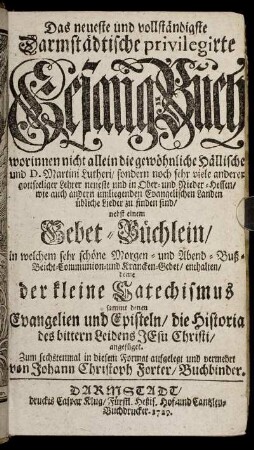 Das neueste und vollständigste
Darmstädtische privilegirte
Gesang-Buch
worinnen nicht allein die gewöhnliche Hällische
und D. Martini Lutheri/ sondern noch sehr viele anderer
gottseeliger Lehrer neueste und in Ober- und Nieder-Hessen/
wie auch andern umliegenden Evangelischen Landen
übliche Lieder zu finden sind/
nebst einem
Gebet-Büchlein/
in welchem sehr schöne Morgen- und Abend- Buß-
Beicht-Communion-und Krancken-Gebet/ enthalten/
der kleine Catechismus
sammt denen
Evangelien und Episteln/ die Historia
des bittern Leidens JEsu Christi/
angefüget.
Zum sechstenmal in diesem Format aufgelegt und vermehrt
von Johann Christoph Forter/ Buchbinder.
DARMSTADT/
druckts Caspar Klug/ Fürstl. Hess. Hof-und Cantzley-
Buchdrucker. 1729.